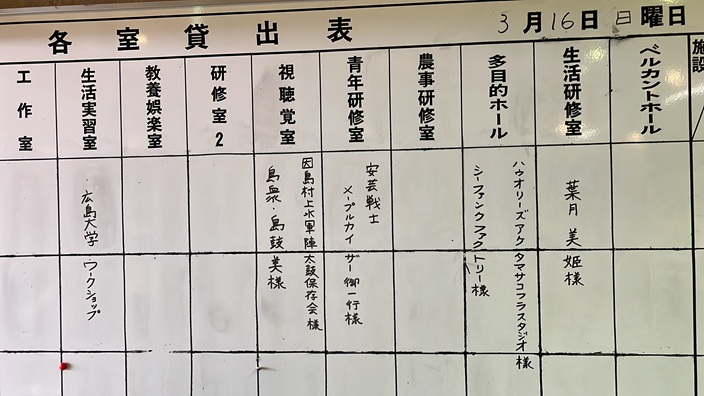 各室貸出表
3月16日 日曜日
施設
ベルカントホール
生活研修室
多目的ホール
農事研修室
青年研修室
視聴覚室
研修室2
教養娯楽室
生活実習室
工作室
葉月 美姫様
ハゥオリーズアクタマサコフラスタジオ様
シーファンクファクトリー様
安芸戦士
メープルカイザー御一行様
因島村上水軍陣太鼓保存会様
島衆・島鼓美様
広島大学・ワークショップ